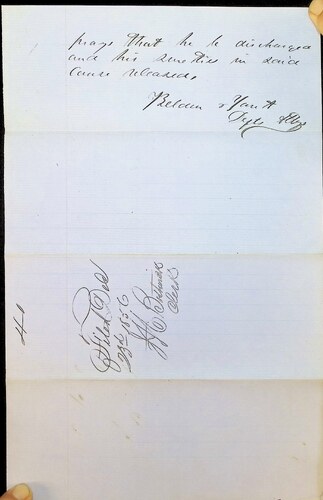 prays that he be discharged
and his sureties in said
cause released.
Belden & 
Attys
41
Filed Dec
23d 1856
Clerk